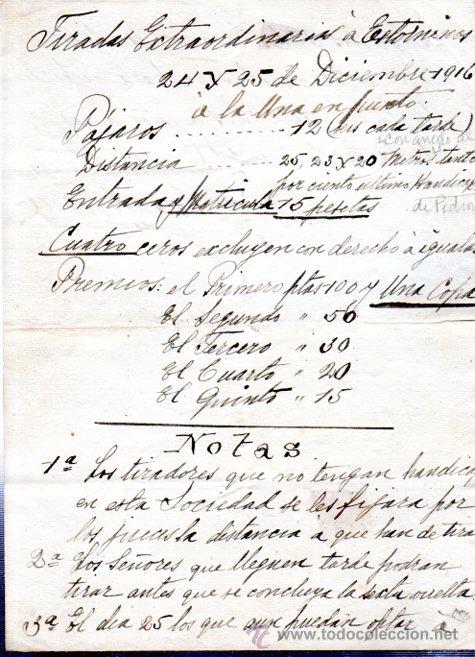 Tiradas Extraordinarias á Estorninos
24 y 25 de Diciembre 1916
á la Una en punto.
Pájaros ........ 12 (seis cada tarde)
Distancia ........ 25 23 y 20 Metros tanto
por ciento ultimo Handicap
Entrada y Matricula 15 pesetas
de Pichon
Cuatro ceros excluyen con derecho á igualar
Premios: el Primero ptas 100 y Una Copa
El Segundo " 50
El Tercero " 30
El Cuarto " 20
El Quinto " 15
Notas
1ª Los tiradores que no tengan handicap
en esta Sociedad se les fijara por
los jueces la distancia a que han de tirar
2ª Los Señores que lleguen tarde podran
tirar antes que se concluya la sesta vuelta
3ª El dia 25 los que aun puedan optar á
© todocoleccion
www.todocoleccion.net